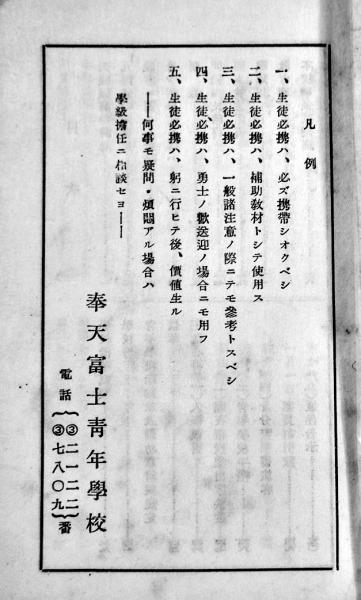 凡例
一、生徒必携ハ、必ズ携帶シオクベシ
二、生徒必携ハ、補助敎材トシテ使用ス
三、生徒必携ハ、一般諸注意ノ際ニテモ參考トスベシ
四、生徒必携ハ、勇士ノ歡送迎ノ場合ニモ用フ
五、生徒必携ハ、躬ニ行ヒテ後、價値生ル
——何事モ疑問・煩悶アル場合ハ
學級擔任ニ相談セヨ——
奉天富士靑年學校
電話 ③二一二二 ③七八〇九 番